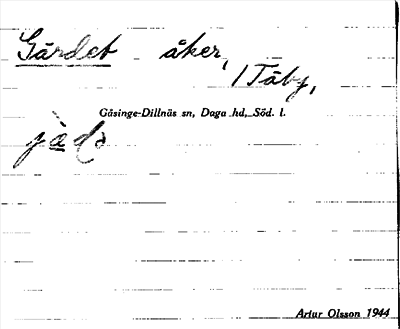 Gärdet åker,
i Täby,
Gåsinge-Dillnäs sn, Daga hd, Söd. l.
Artur Olsson 1944